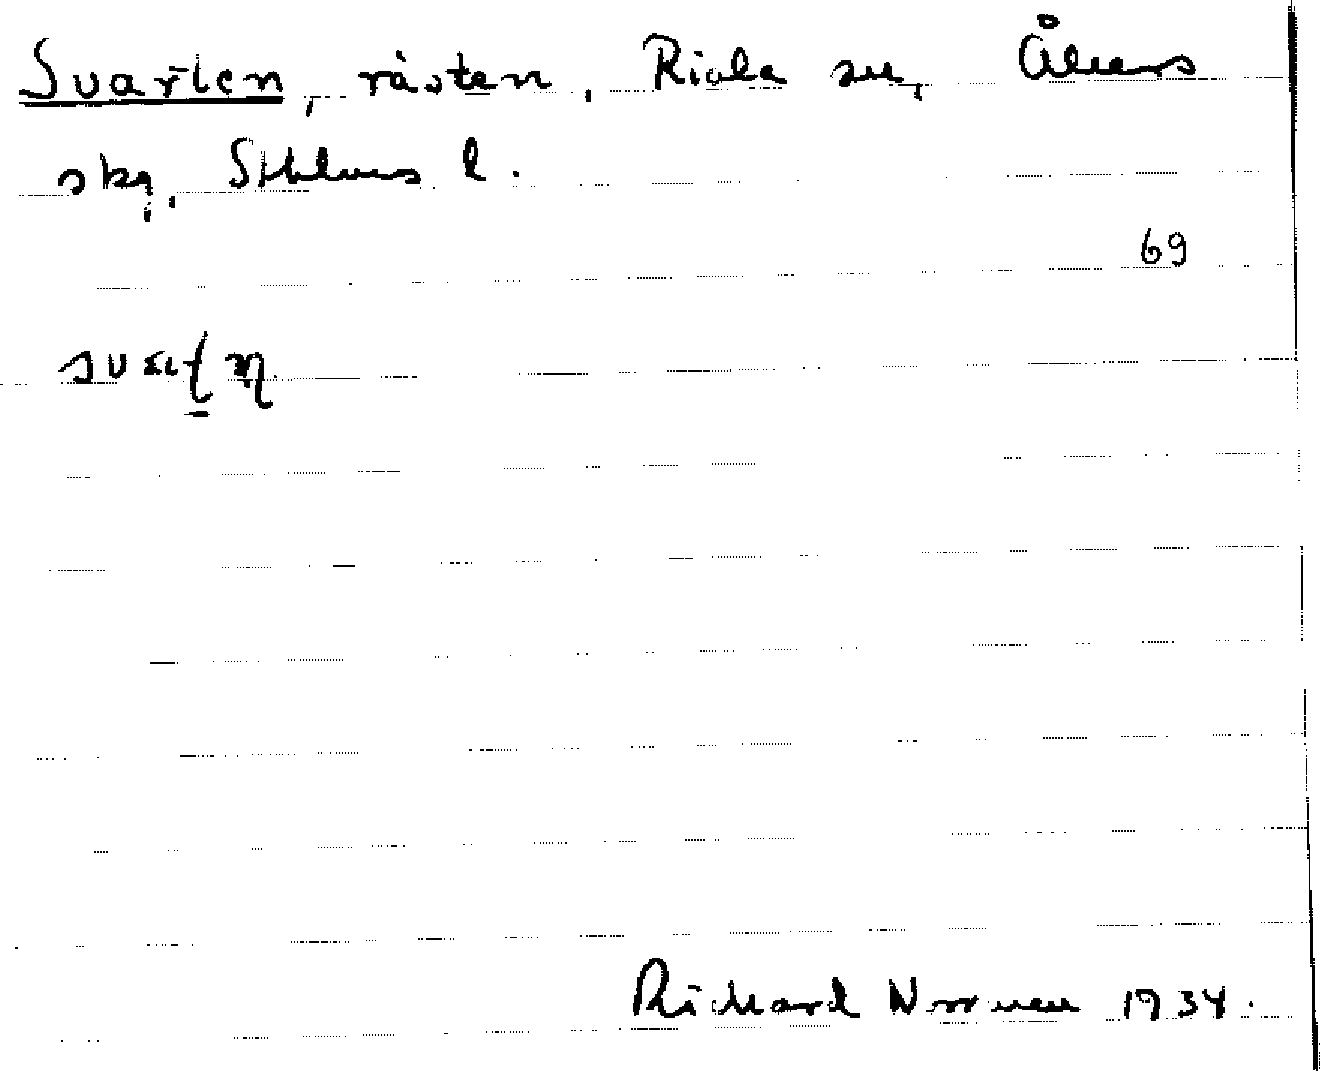 Svarten, råsten, Riala sn, Åkers
skg, Sthlms l.
69
Richard Norrman 1934.